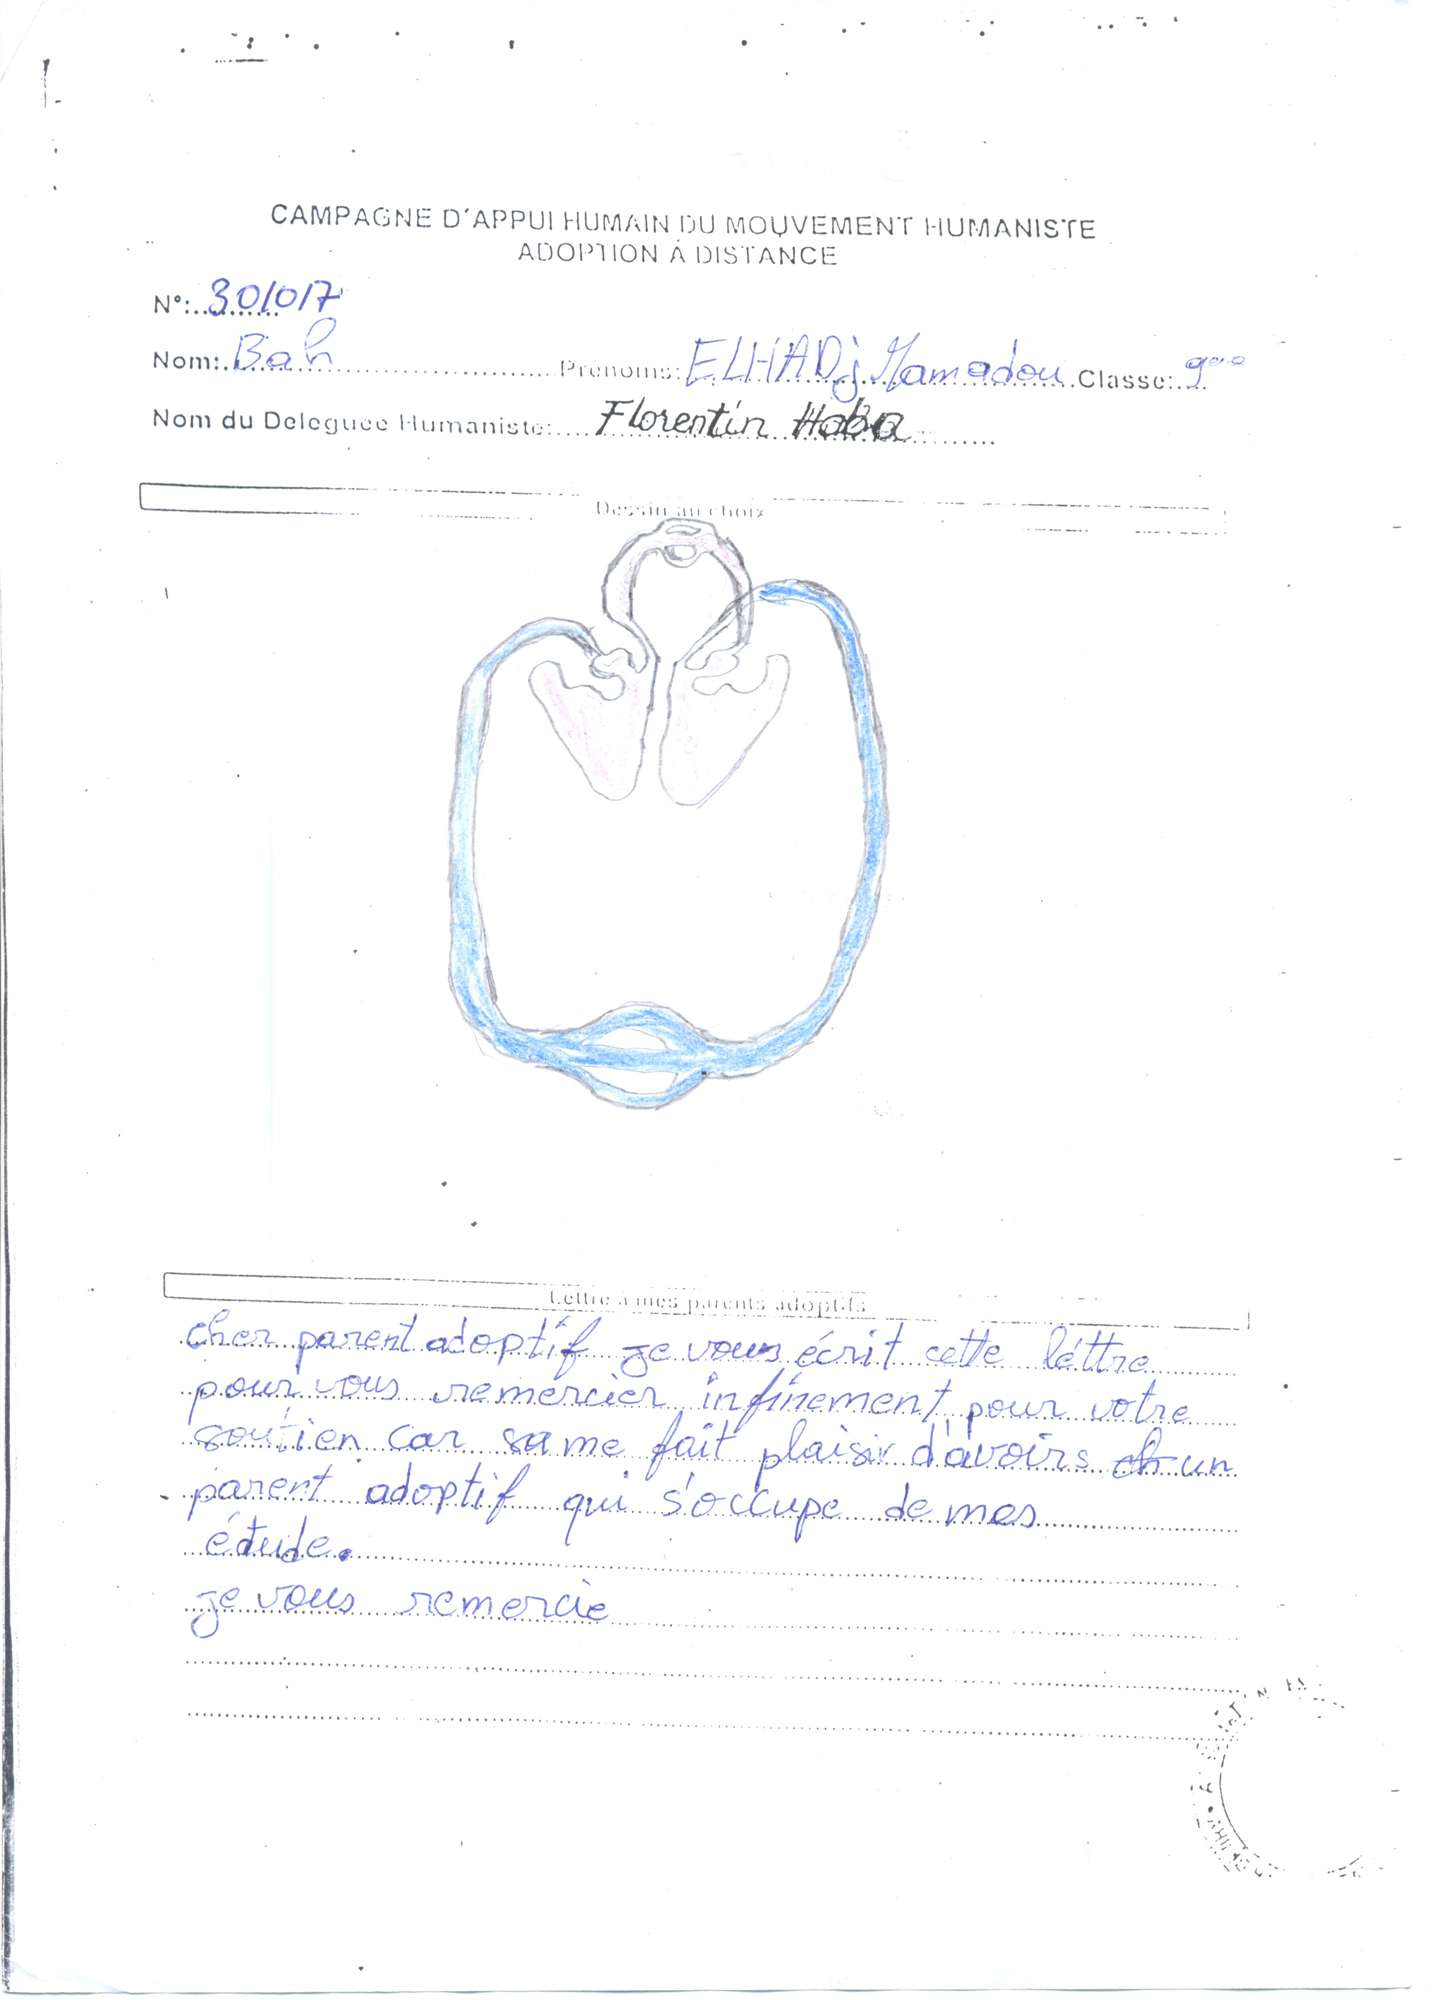 CAMPAGNE D'APPUI HUMAIN DU MOUVEMENT HUMANISTE
ADOPTION À DISTANCE
N°: 30/017
Nom: Bah Prénoms: ELHADj Mamadou Classe: 9
Nom du Deleguee Humaniste: Florentin Haba
Dessin au choix
Lettre à mes parents adoptifs
cher parent adoptif je vous écrit cette léttre
pour vous remercier infinement pour votre
soutien car sa me fait plaisir d'avoirs un
parent adoptif qui s'occupe de mes
étude.
je vous remercie